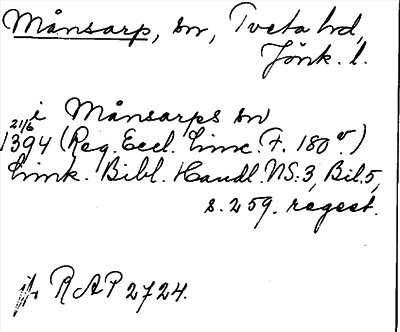 Månsarp, sn, Tveta hd,
Jönk. l.
i Månsarps sn
21/6
1394 (Reg. Eccl. Linc. F. 180 v.)
Link. Bibl. Handl. NS: 3, Bil. 5,
s. 259. regest.
jfr RAP 2724.